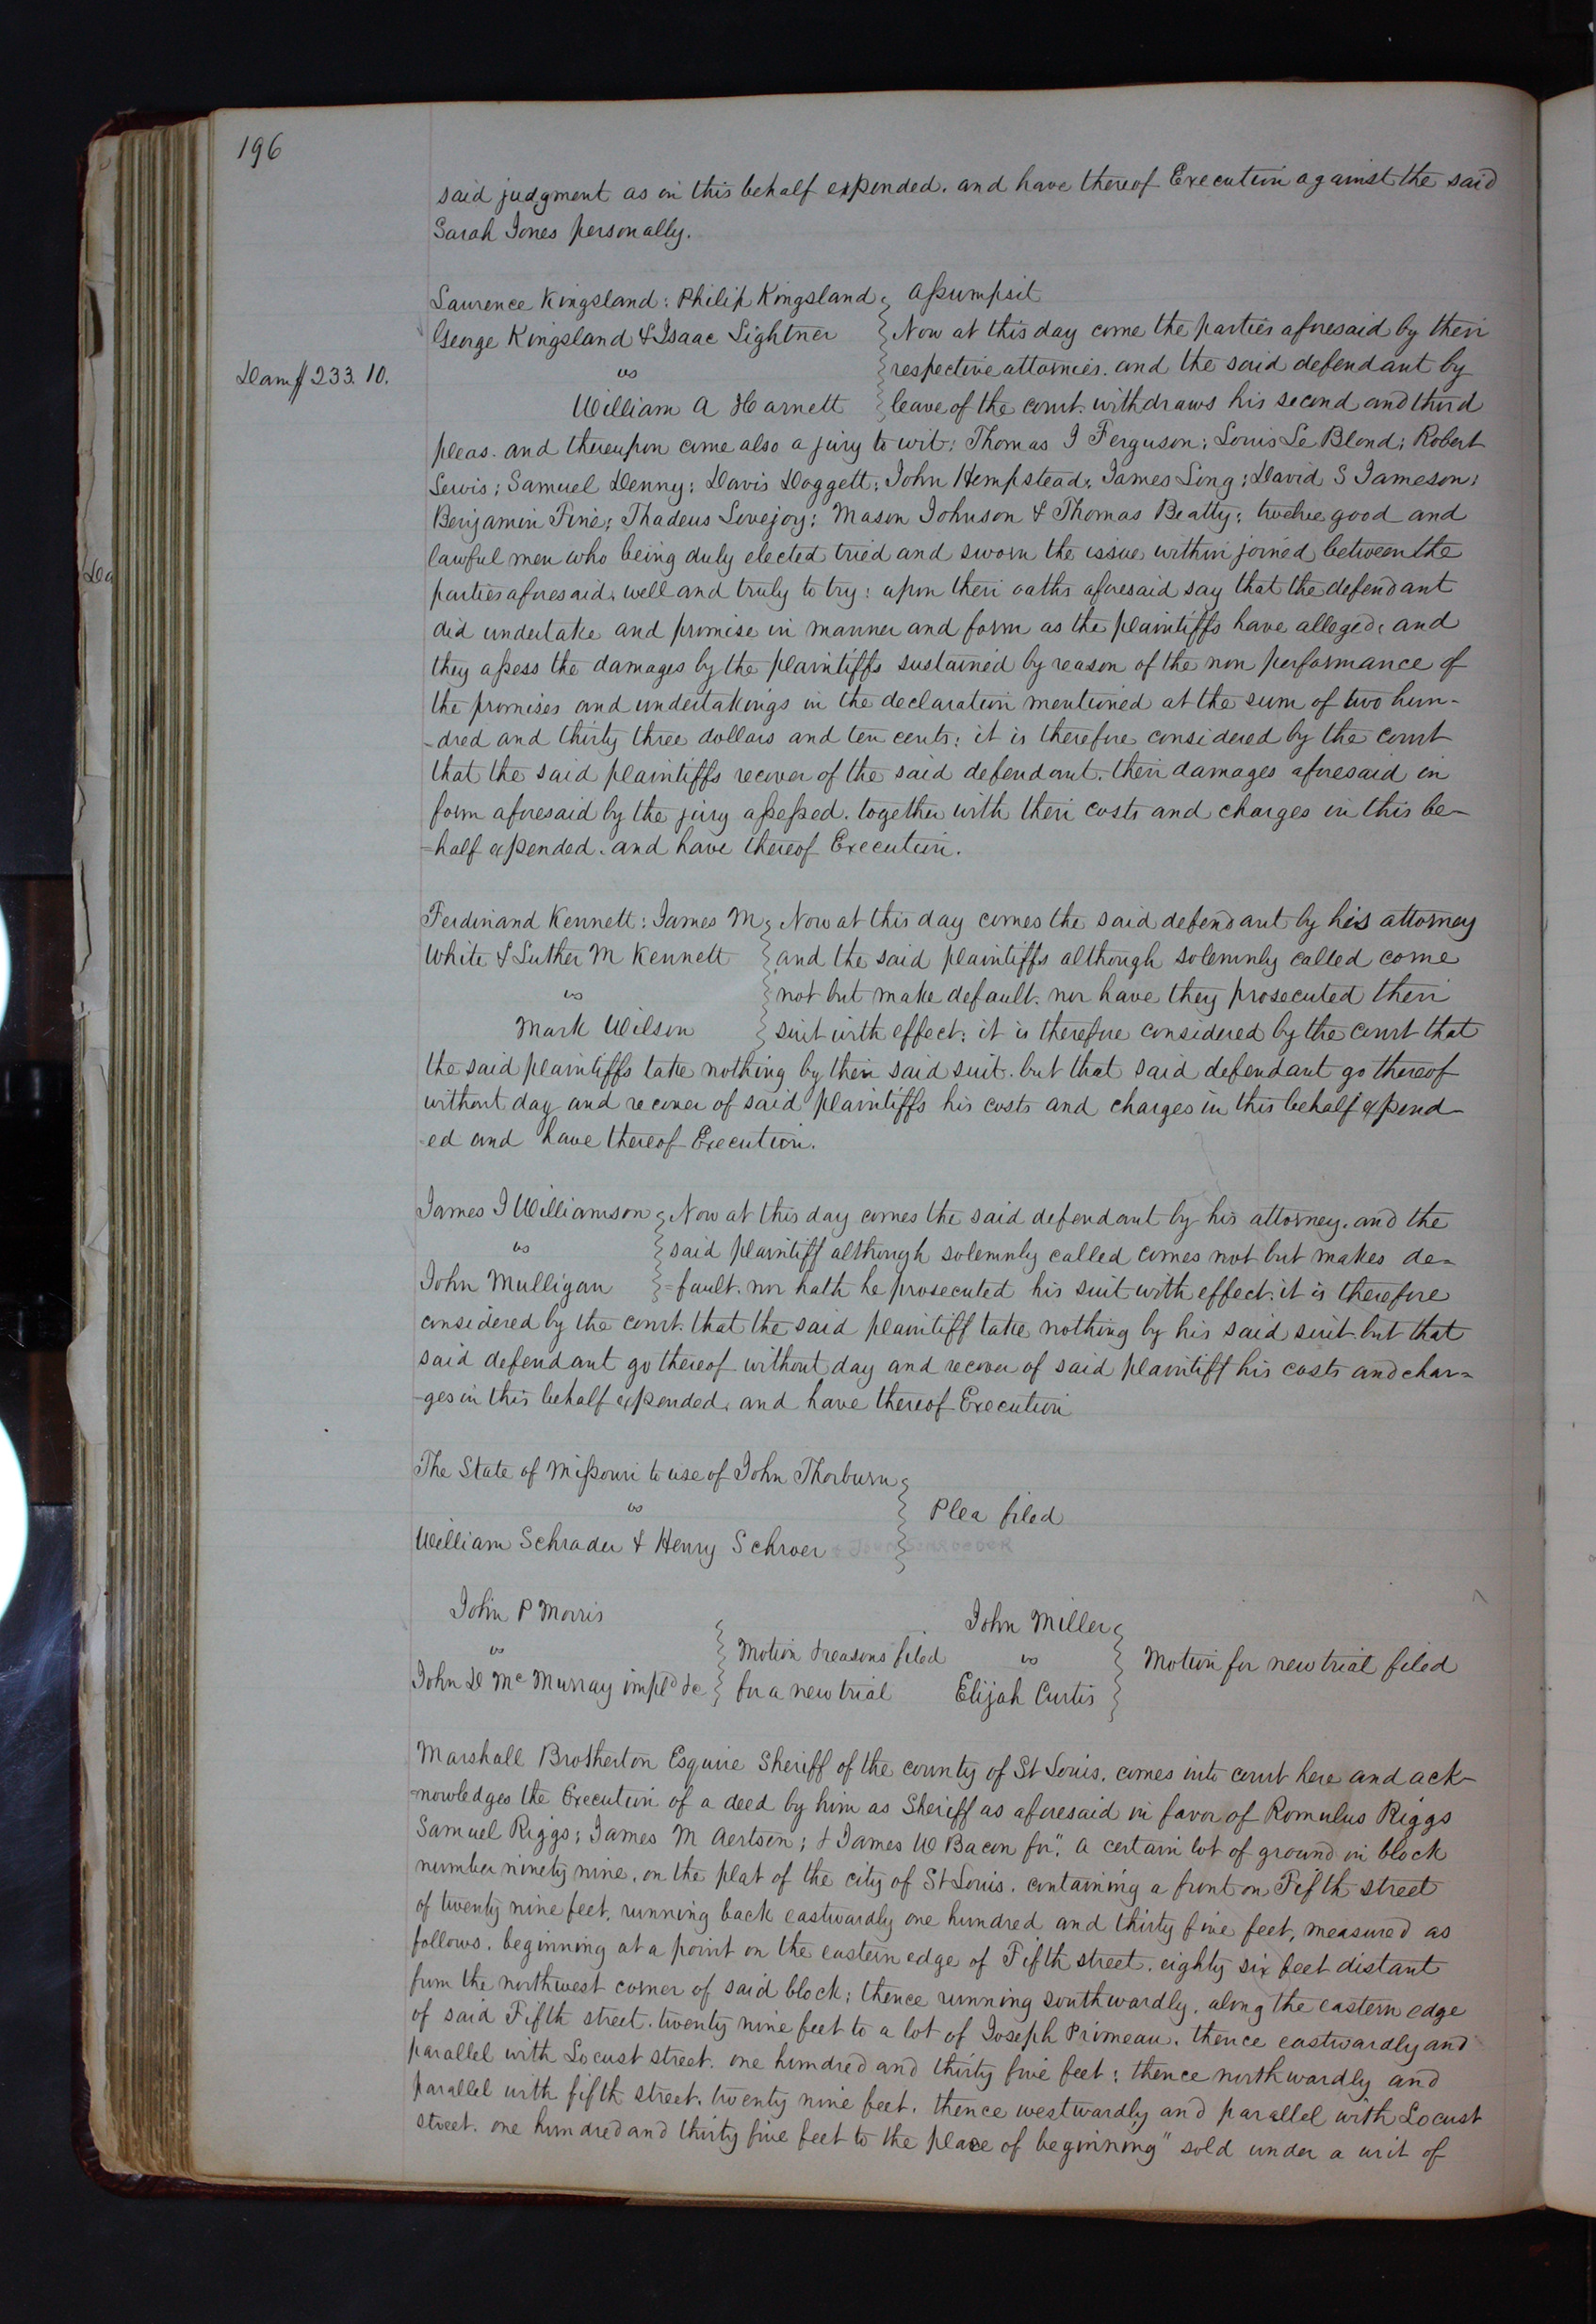 196
said judgment as in this behalf expended. and have thereof Execution against the said
Sarah Jones personally.
Laurence Kingsland: Philip Kingsland Assumpsit
George Kingsland & Isaac Lightner Now at this day come the parties aforesaid by their
Dam $233.10. vs respective attornies. and the said defendant by
William A Harnett leave of the court. withdraws his second and third
pleas. and thereupon come also a jury to wit: Thomas J Ferguson: Louis Le Blond: Robert
Lewis: Samuel Denny: Davis Doggett: John Hempstead: James Long: David S Jameson:
Benjamin Fine: Thadeus Lovejoy: Mason Johnson & Thomas Beatty: twelve good and
lawful men who being duly elected tried and sworn the issue within joined between the
parties aforesaid. well and truly to try: upon their oaths aforesaid say that the defendant
did undertake and promise in manner and form as the plaintiffs have alleged. and
they assess the damages by the plaintiffs sustained by reason of the non performance of
the promises and undertakings in the declaration mentioned at the sum of two hun-
-dred and thirty three dollars and ten cents: it is therefore considered by the court
that the said plaintiffs recover of the said defendant. their damages aforesaid in
form aforesaid by the jury assessed. together with their costs and charges in this be-
-half expended. and have thereof Execution.
Ferdinand Kennett: James M Now at this day comes the said defendant by his attorney
White & Luther M Kennett and the said plaintiffs although solemnly called come
vs not but make default. nor have they prosecuted their
Mark Wilson suit with effect: it is therefore considered by the court that
the said plaintiffs take nothing by their said suit. but that said defendant go thereof
without day and recover of said plaintiffs his costs and charges in this behalf expend-
-ed and have thereof Execution.
James J Williamson Now at this day comes the said defendant by his attorney. and the
vs said plaintiff although solemnly called comes not but makes de-
John Mulligan -fault. nor hath he prosecuted his suit with effect. it is therefore
considered by the court. that the said plaintiff take nothing by his said suit. but that
said defendant go thereof without day and recover of said plaintiff his costs and char-
-ges in this behalf expended. and have thereof Execution
The State of Missouri to use of John Thorburn
vs Plea filed
William Schrader & Henry Schroer
John P Morris John Miller
vs Motion & reasons filed vs Motion for new trial filed
John D McMurray impld &c for a new trial Elijah Curtis
Marshall Brotherton Esquire Sheriff of the county of St Louis. comes into court here and ack-
-nowledges the Execution of a deed by him as Sheriff as aforesaid in favor of Romulus Riggs
Samuel Riggs; James M Aertsen; & James W Bacon for". A certain lot of ground in block
number ninety nine. on the plat of the city of St Louis. containing a front on Fifth street
of twenty nine feet. running back eastwardly one hundred and thirty five feet, measured as
follows. beginning at a point on the eastern edge of Fifth street. eighty six feet distant
from the northwest corner of said block: thence running southwardly. along the eastern edge
of said Fifth street. twenty nine feet to a lot of Joseph Primeau. thence eastwardly and
parallel with Locust street. one hundred and thirty five feet: thence northwardly and
parallel with fifth street. twenty nine feet. thence westwardly and parallel with Locust
street. one hundred and thirty five feet to the place of beginning" sold under a writ of